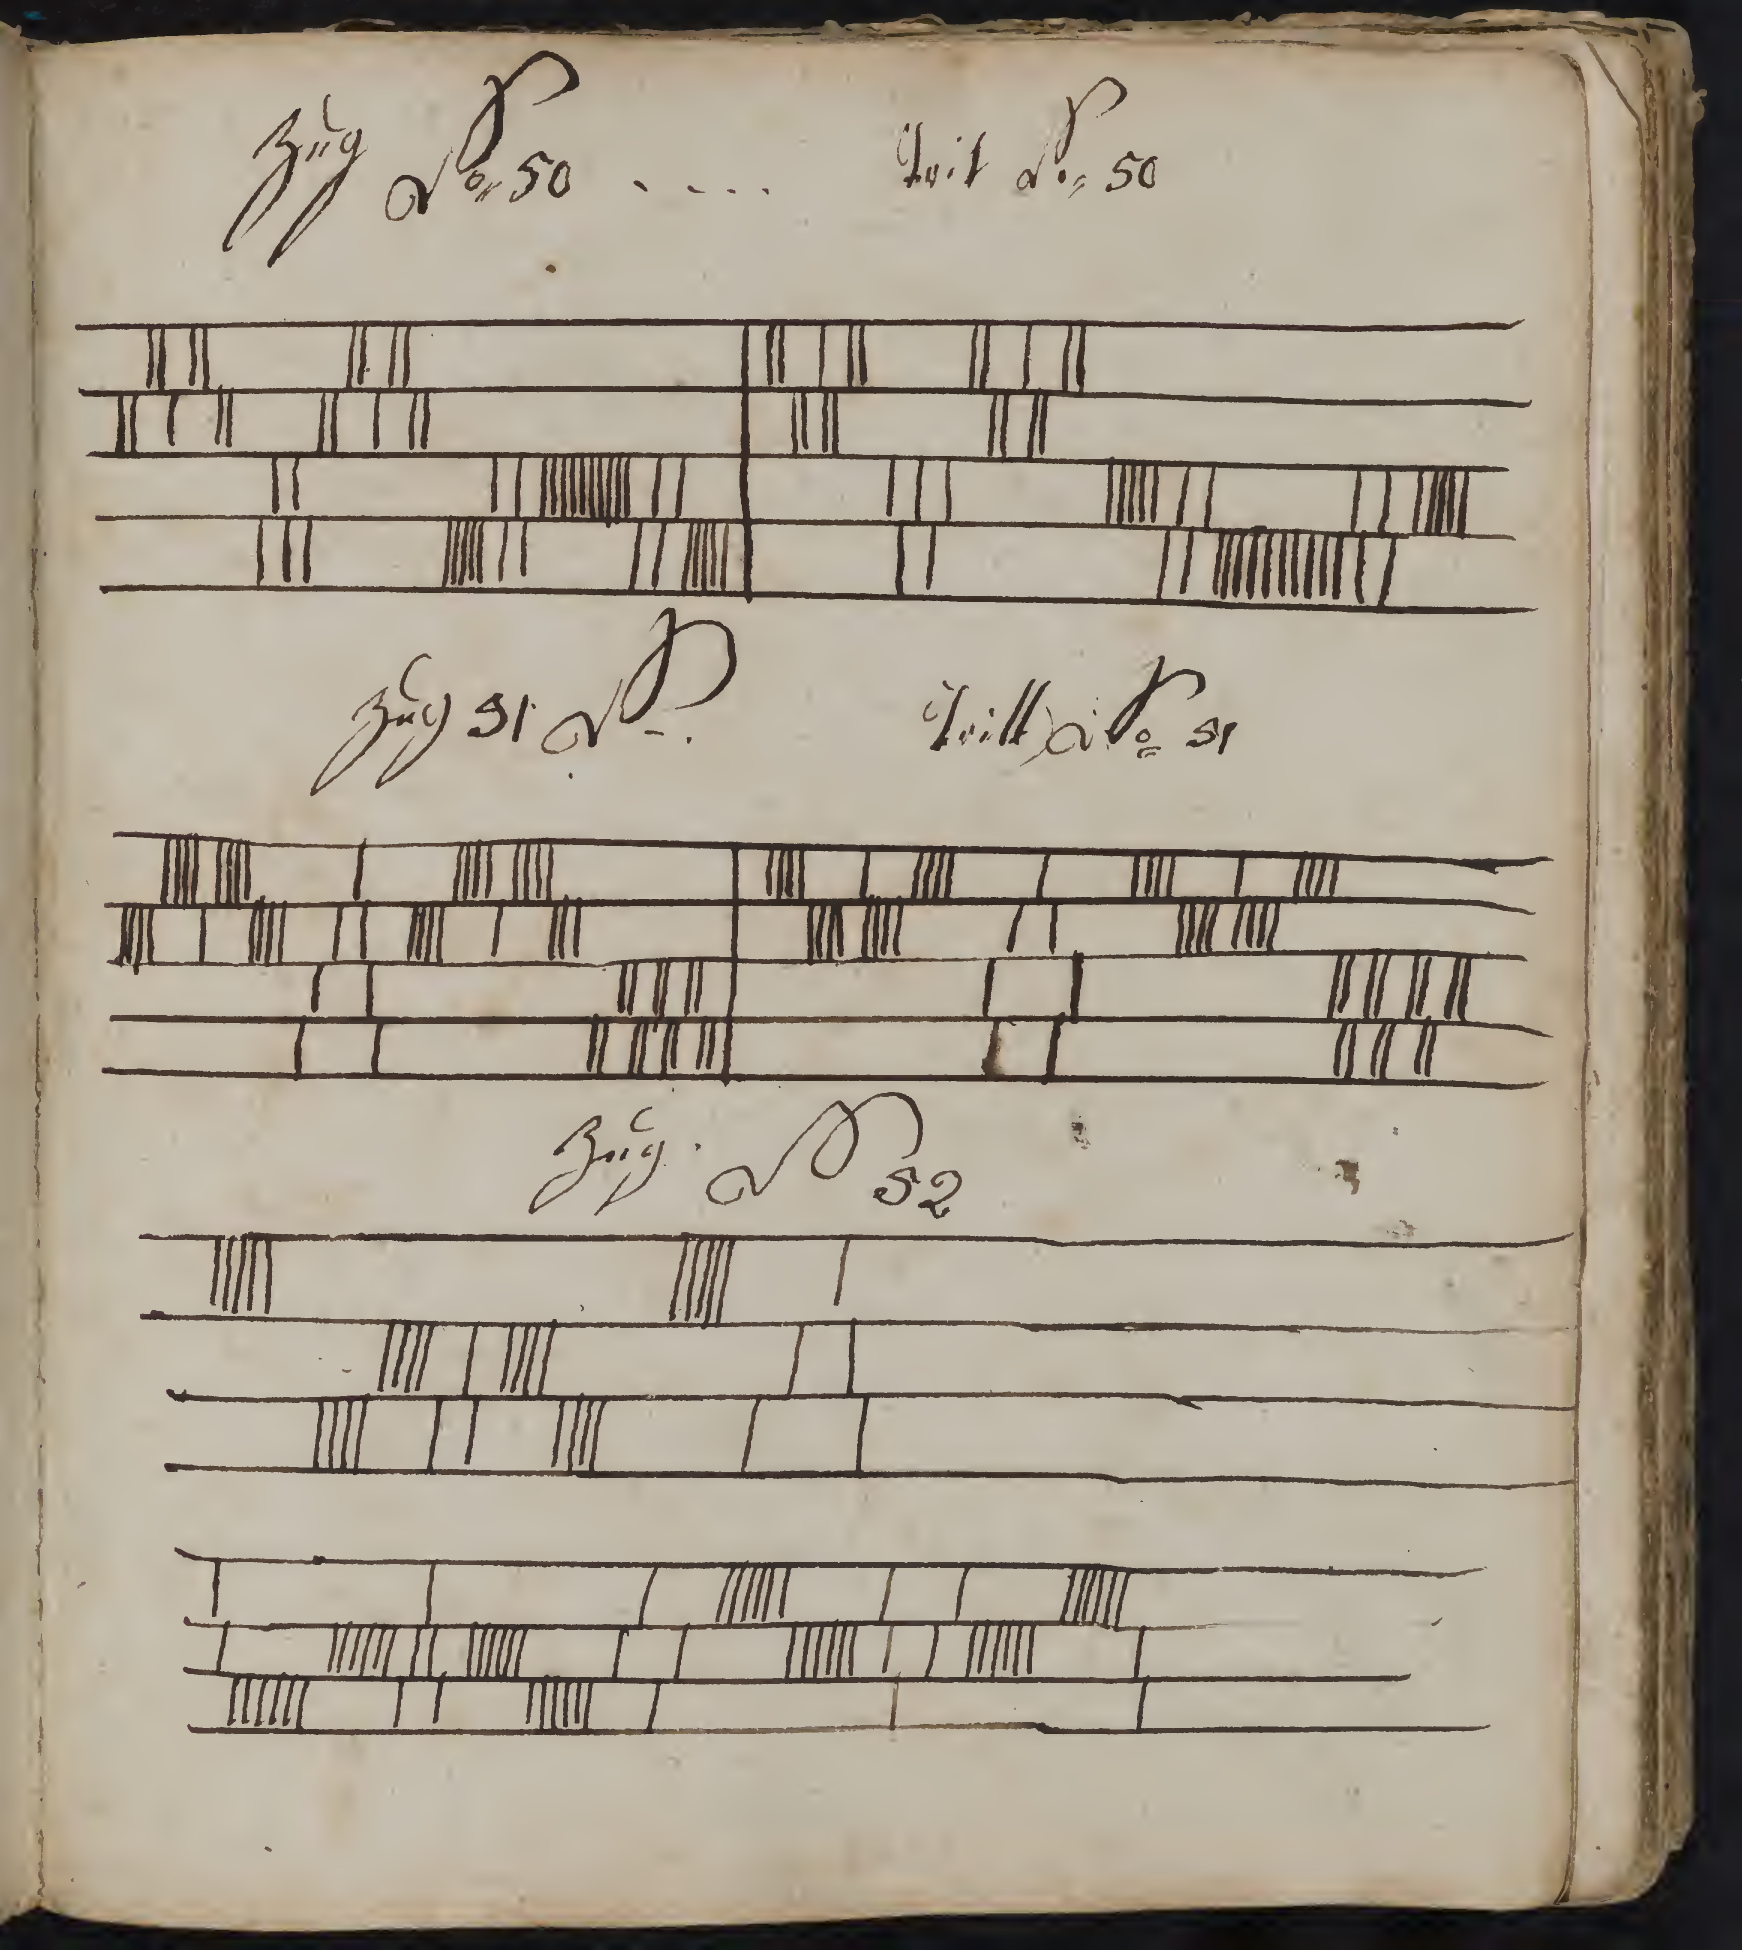 Zug No 50 .... Trit No 50
Zug 51 No Tritt No 51
Zug No 52